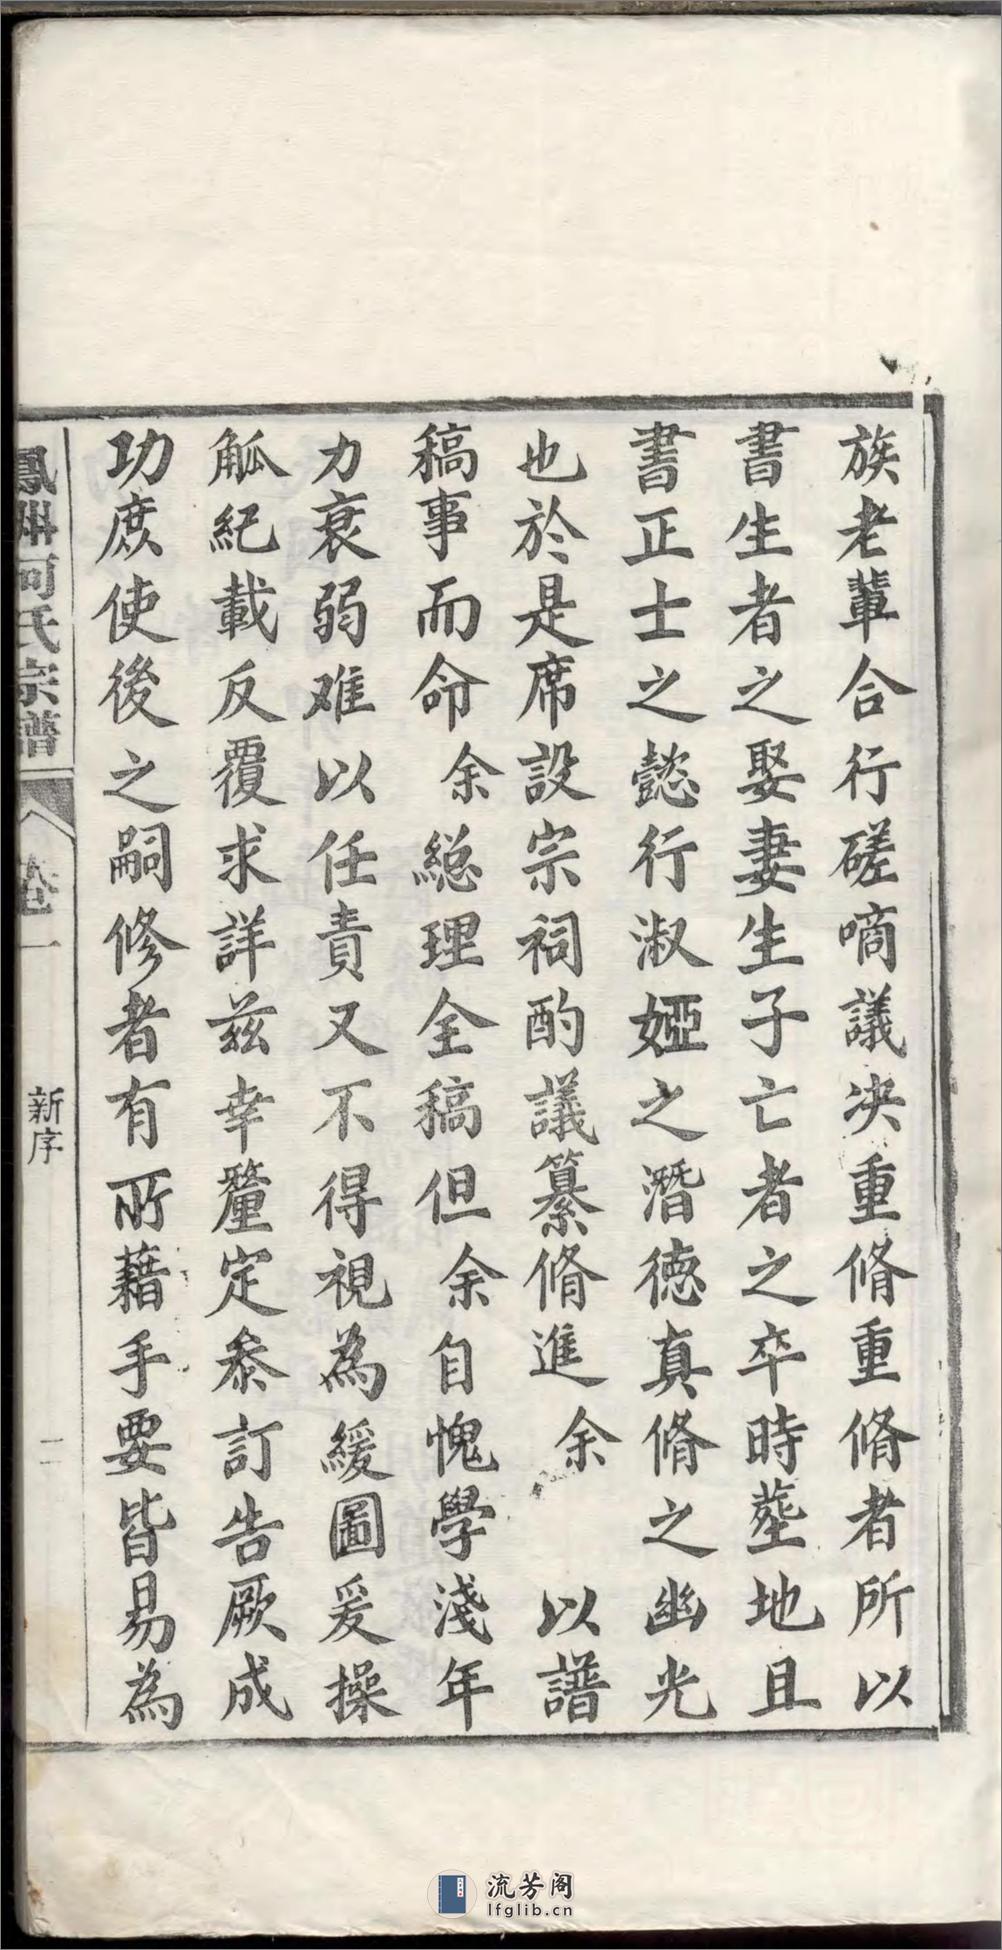 族老輩合行磋啇議决重脩重脩者所以
書生者之娶妻生子亡者之卒時塟地且
書正士之懿行淑婭之潛德真脩之幽光
也於是席設宗祠酌議纂脩進余以譜
稿事而命余総理全稿但余自愧學淺年
力衰弱难以任責又不得視為緩圖爰操
觚紀載反覆求詳兹幸釐定叅訂告厥成
功庶使後之嗣修者有所藉手要皆易為
河氏宗譜
卷一
新序
二
流芳阁
lfglib.cn